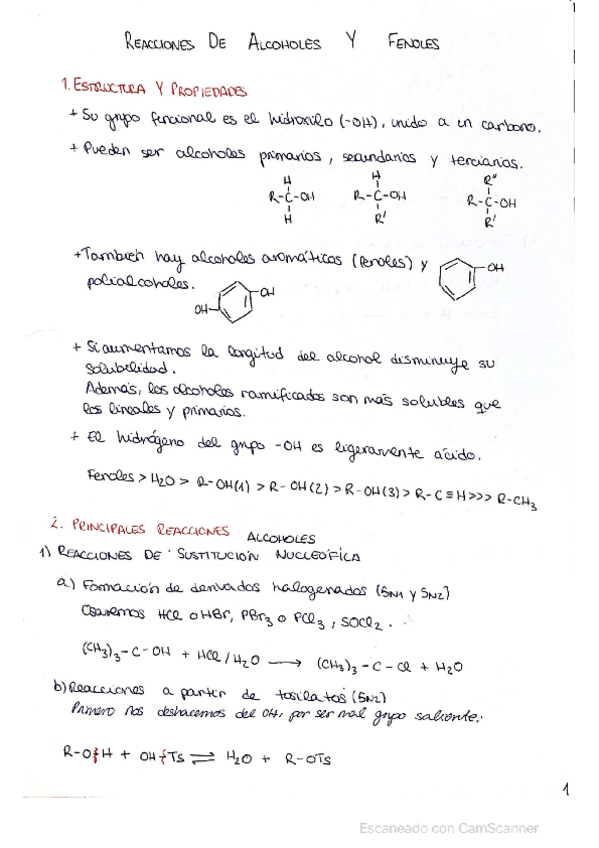 REACCIONES DE ALCOHOLES Y FENOLES
1. ESTRUCTURA Y PROPIEDADES
+ Su grupo funcional es el hidroxilo (-OH), unido a un carbono.
+ Pueden ser alcoholes primarios, secundarios y terciarios.
H H R''
R-C-OH R-C-OH R-C-OH
H R' R'
+ También hay alcoholes aromáticos (fenoles) y
OH
polialcoholes.
OH OH
+ Si aumentamos la longitud del alcohol disminuye su
solubilidad.
Además, los alcoholes ramificados son más solubles que
los lineales y primarios.
+ El hidrógeno del grupo -OH es ligeramente ácido.
Fenoles > H2O > R-OH(1) > R-OH(2) > R-OH(3) > R-C≡H >>> R-CH3
2. PRINCIPALES REACCIONES ALCOHOLES
1) REACCIONES DE SUSTITUCIÓN NUCLEÓFICA
a) Formación de derivados halogenados (SN1 y SN2)
Usaremos HCl o HBr, PBr3 o PCl3, SOCl2.
(CH3)3-C-OH + HCl/H2O → (CH3)3-C-Cl + H2O
b) Reacciones a partir de tosilatos (SN2)
Primero nos deshacemos del OH, por ser mal grupo saliente:
R-O H + OH Ts ⇌ H2O + R-OTs
1
Escaneado con CamScanner